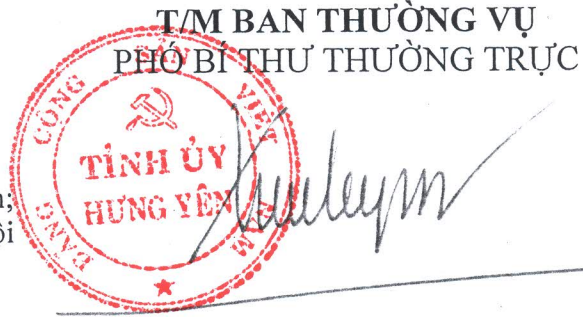 T/M BAN THƯỜNG VỤ
PHÓ BÍ THƯ THƯỜNG TRỰC
ĐẢNG CỘNG SẢN VIỆT NAM
TỈNH ỦY
HƯNG YÊN